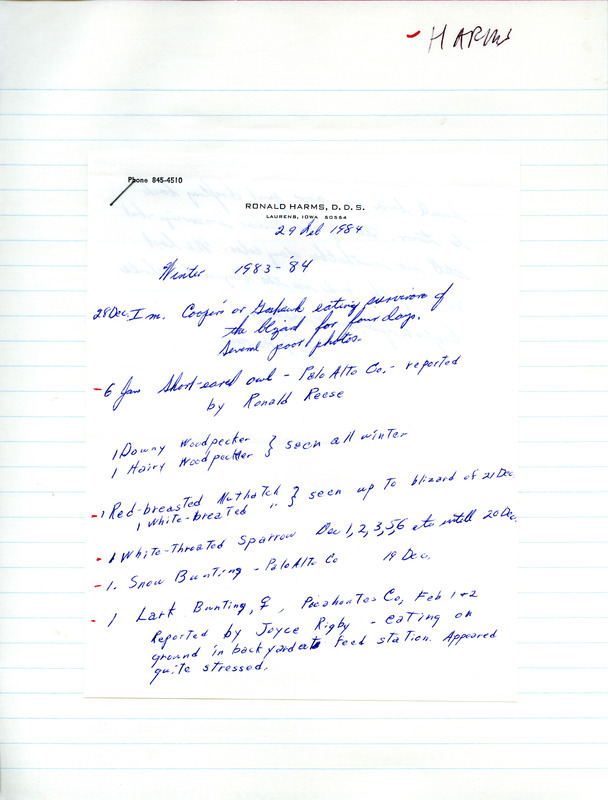 - HARMS
Phone 845-4510
RONALD HARMS, D. D. S.
LAURENS, IOWA 50554
29 Feb 1984
Winter 1983-'84
28 Dec. Im. Cooper's or Goshawk eating survivors of
the blizard for four days.
Several poor photos.
- 6 Jan Short-eared owl - Palo Alto Co. - reported
by Ronald Reese
1 Downy Woodpecker } seen all winter
1 Hairy Woodpecker
- 1 Red-breasted Nuthatch } seen up to blizard of 21 Dec.
1 White-breated "
- 1 White-Throated Sparrow Dec 1, 2, 3, 5, 6 etc untill 20 Dec.
- 1. Snow Bunting - Palo Alto Co 19 Dec.
- 1 Lark Bunting, ♀, Pocahontas Co, Feb 1+2
Reported by Joyce Rigby - eating on
ground in backyard at feed station. Appeared
quite stressed.